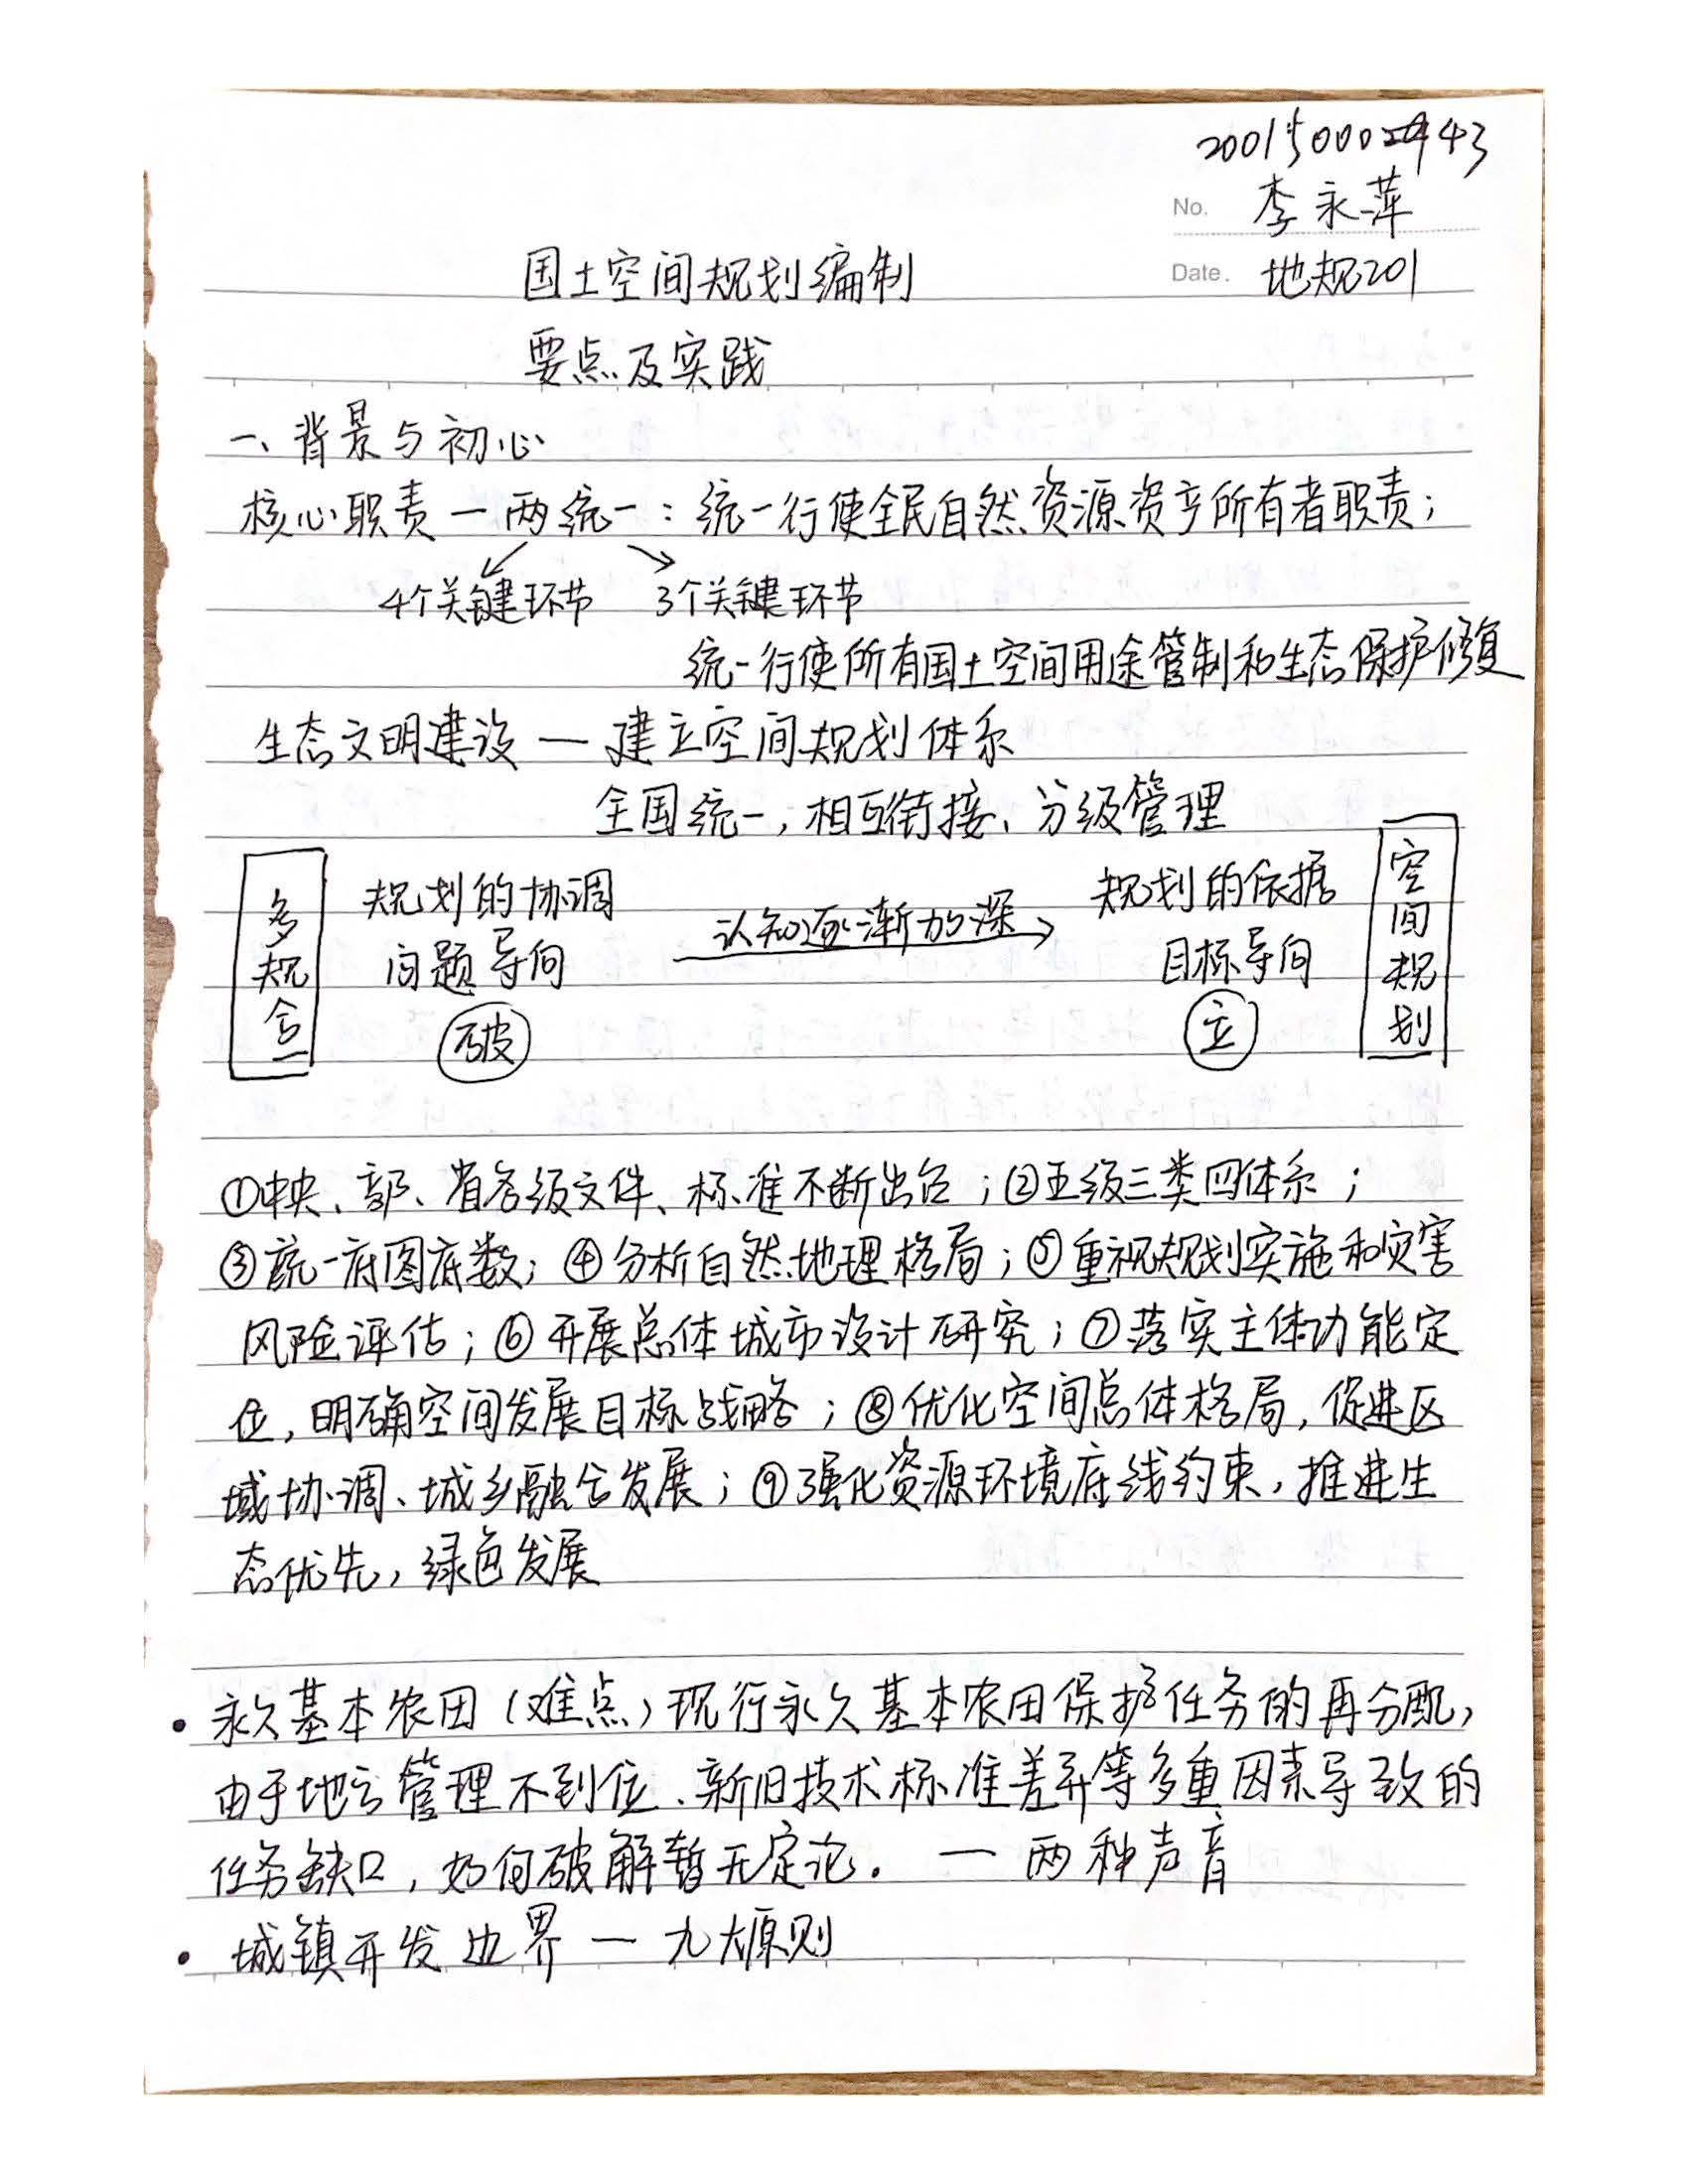 2001500043
No. 李永萍
Date. 地规201
国土空间规划编制
要点及实践
一、背景与初心
核心职责 — 两统一：统一行使全民自然资源资产所有者职责；
4个关键环节 3个关键环节
统一行使所有国土空间用途管制和生态保护修复
生态文明建设 — 建立空间规划体系
全国统一，相互衔接、分级管理
多规合一
规划的协调
问题导向
破
认知逐渐加深
规划的依据
目标导向
立
空间规划
①中央、部、省各级文件、标准不断出台；②五级三类四体系；
③统一底图底数；④分析自然地理格局；⑤重视规划实施和灾害
风险评估；⑥开展总体城市设计研究；⑦落实主体功能定
位，明确空间发展目标战略；⑧优化空间总体格局，促进区
域协调、城乡融合发展；⑨强化资源环境底线约束，推进生
态优先，绿色发展
• 永久基本农田（难点）现行永久基本农田保护任务的再分配，
由于地方管理不到位、新旧技术标准差异等多重因素导致的
任务缺口，如何破解暂无定论。 — 两种声音
• 城镇开发边界 — 九大原则